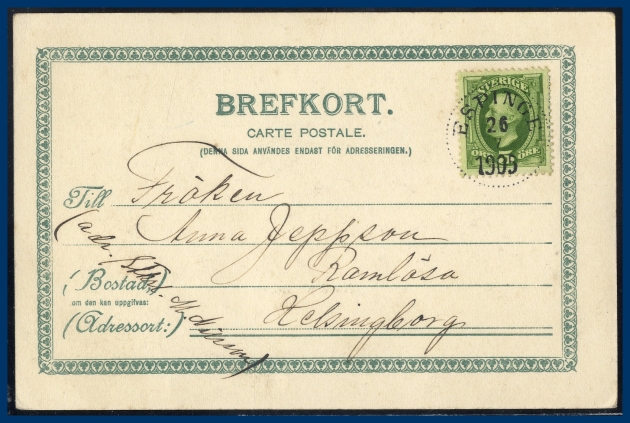 BREFKORT.
CARTE POSTALE.
(DENNA SIDA ANVÄNDES ENDAST FÖR ADRESSERINGEN.)
SVERIGE
ESPINGE
26
1905
ÖRE ÖRE
Till Fröken
Anna Jeppson
(adr.
Ramlösa
(Bostad,
om den kan uppgifvas:
Helsingborg
(Adressort:)